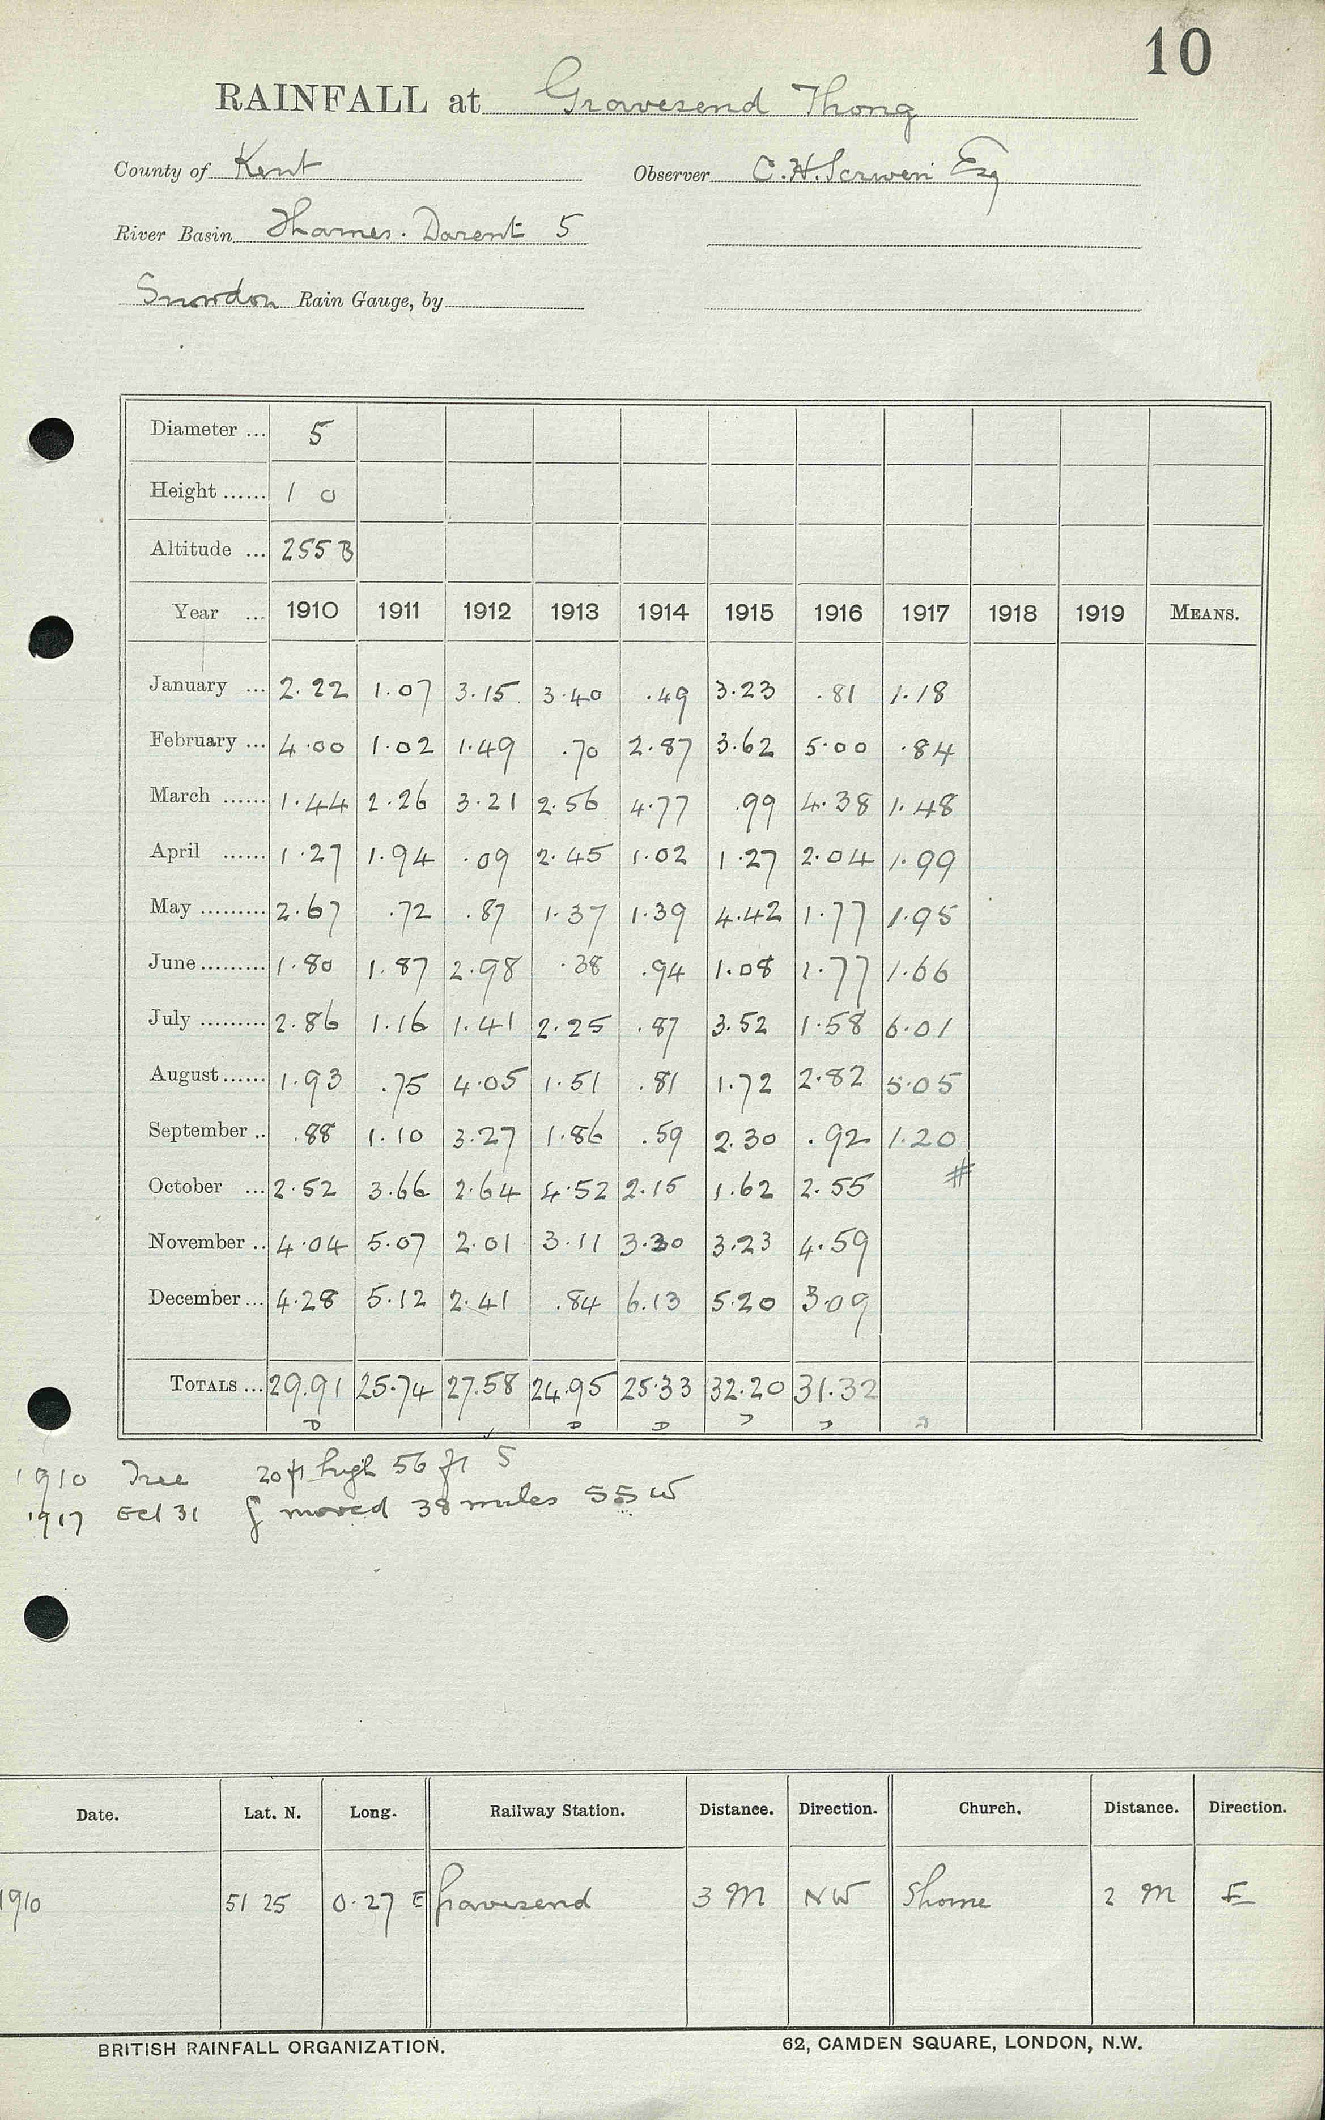 10
RAINFALL at Gravesend Thong
County of Kent Observer C. H. Scriven Esq
River Basin Thames. Darent 5
Snowdon Rain Gauge, by
Diameter ... 5
Height ...... 1 0
Altitude ... 255 B
Year ... 1910 1911 1912 1913 1914 1915 1916 1917 1918 1919 MEANS.
January ... 2.22 1.07 3.15 3.40 .49 3.23 .81 1.18
February ... 4.00 1.02 1.49 .70 2.87 3.62 5.00 .84
March ...... 1.44 2.26 3.21 2.56 4.77 .99 4.38 1.48
April ...... 1.27 1.94 .09 2.45 1.02 1.27 2.04 1.99
May ......... 2.67 .72 .87 1.37 1.39 4.42 1.77 1.95
June ......... 1.80 1.87 2.98 .38 .94 1.08 1.77 1.66
July ......... 2.86 1.16 1.41 2.25 .87 3.52 1.58 6.01
August ...... 1.93 .75 4.05 1.51 .81 1.72 2.82 5.05
September .. .88 1.10 3.27 1.86 .59 2.30 .92 1.20
October ... 2.52 3.66 2.64 4.52 2.15 1.62 2.55 #
November .. 4.04 5.07 2.01 3.11 3.30 3.23 4.59
December ... 4.28 5.12 2.41 .84 6.13 5.20 3.09
TOTALS ... 29.91 25.74 27.58 24.95 25.33 32.20 31.32
D D D D D D
1910 Tree 20 ft high 56 ft S
1917 Oct 31 g moved 38 miles SSW
Date. Lat. N. Long. Railway Station. Distance. Direction. Church. Distance. Direction.
1910 51 25 0.27 E Gravesend 3 M NW Shorne 2 M E
BRITISH RAINFALL ORGANIZATION. 62, CAMDEN SQUARE, LONDON, N.W.